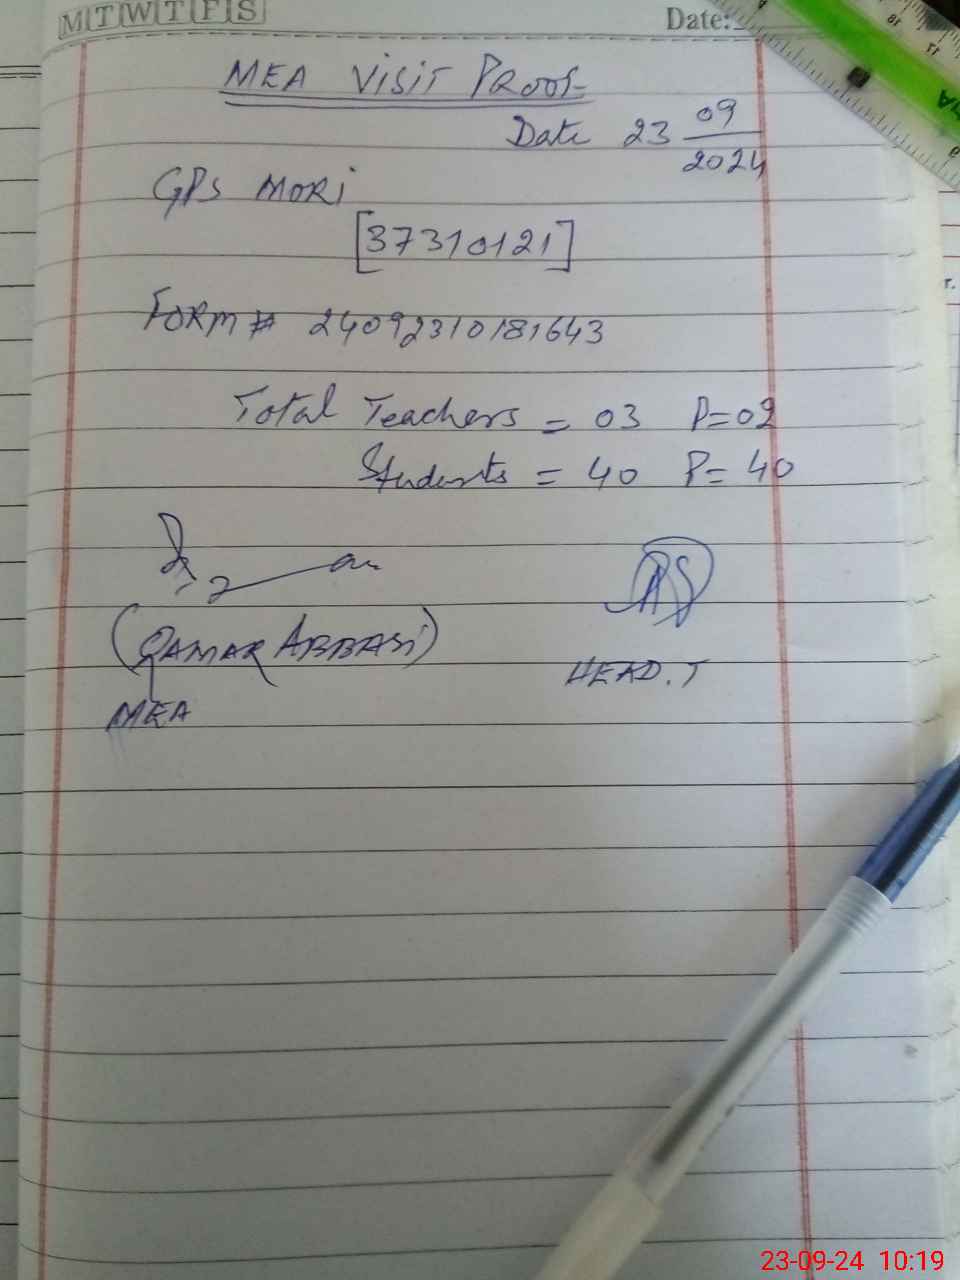 M T W T F S
Date:
MEA VISIT PROOF
Date 23 09/2024
GPS MORI
[37310121]
FORM # 24092310181643
Total Teachers = 03 P=02
Students = 40 P= 40
(QAMAR ABBASI)
MEA
HEAD.T
23-09-24 10:19